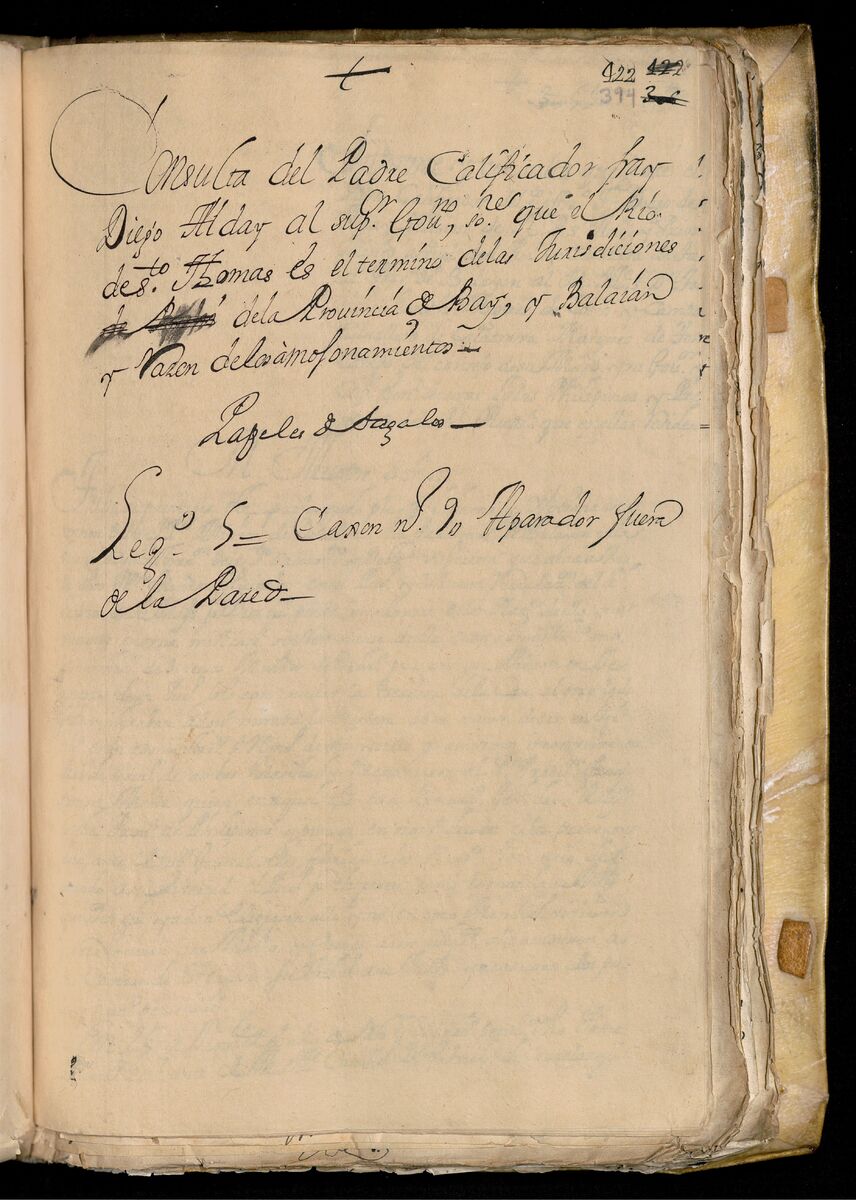 +
422 422
394 3
Consulta del Padre Calificador fray
Diego Alday al sup.or Gou.no, so.re que el Rio
de s.to Thomas es el termino delas Jurisdiciones
dela Prouincia de Bay, y Balaián
y Razon delos àmojonamientos
Papeles de Tagalos
Leg.o 5 = Caxon n.o 9, Aparador fuera
de la Pared